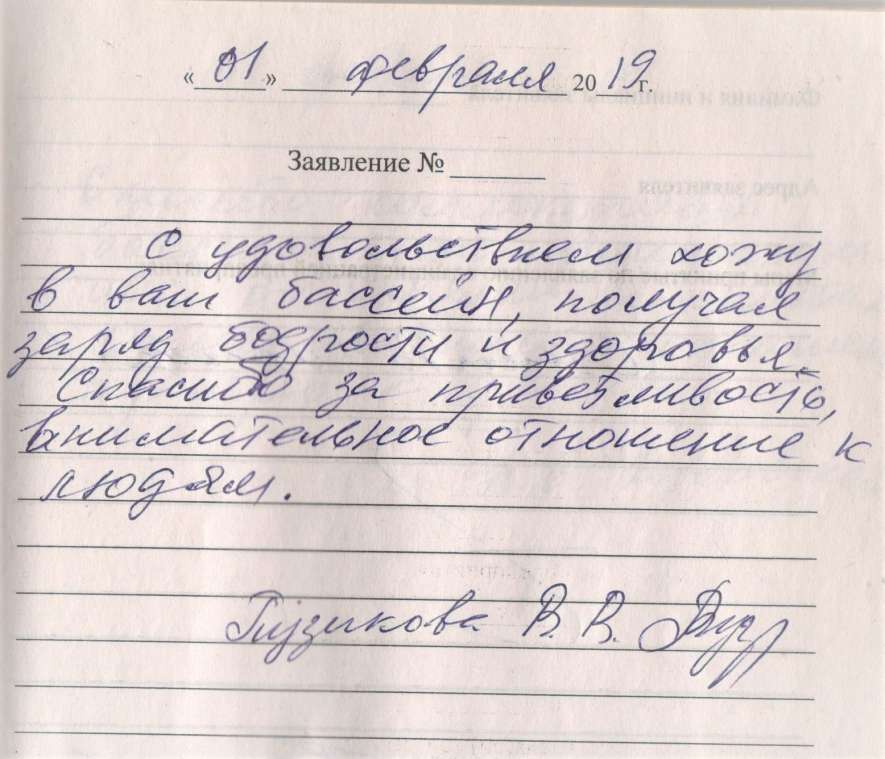 « 01 » февраля 20 19 г.
Заявление № ______
С удовольствием хожу
в ваш бассейн, получая
заряд бодрости и здоровья.
Спасибо за приветливость,
внимательное отношение к
людям.
В. В.